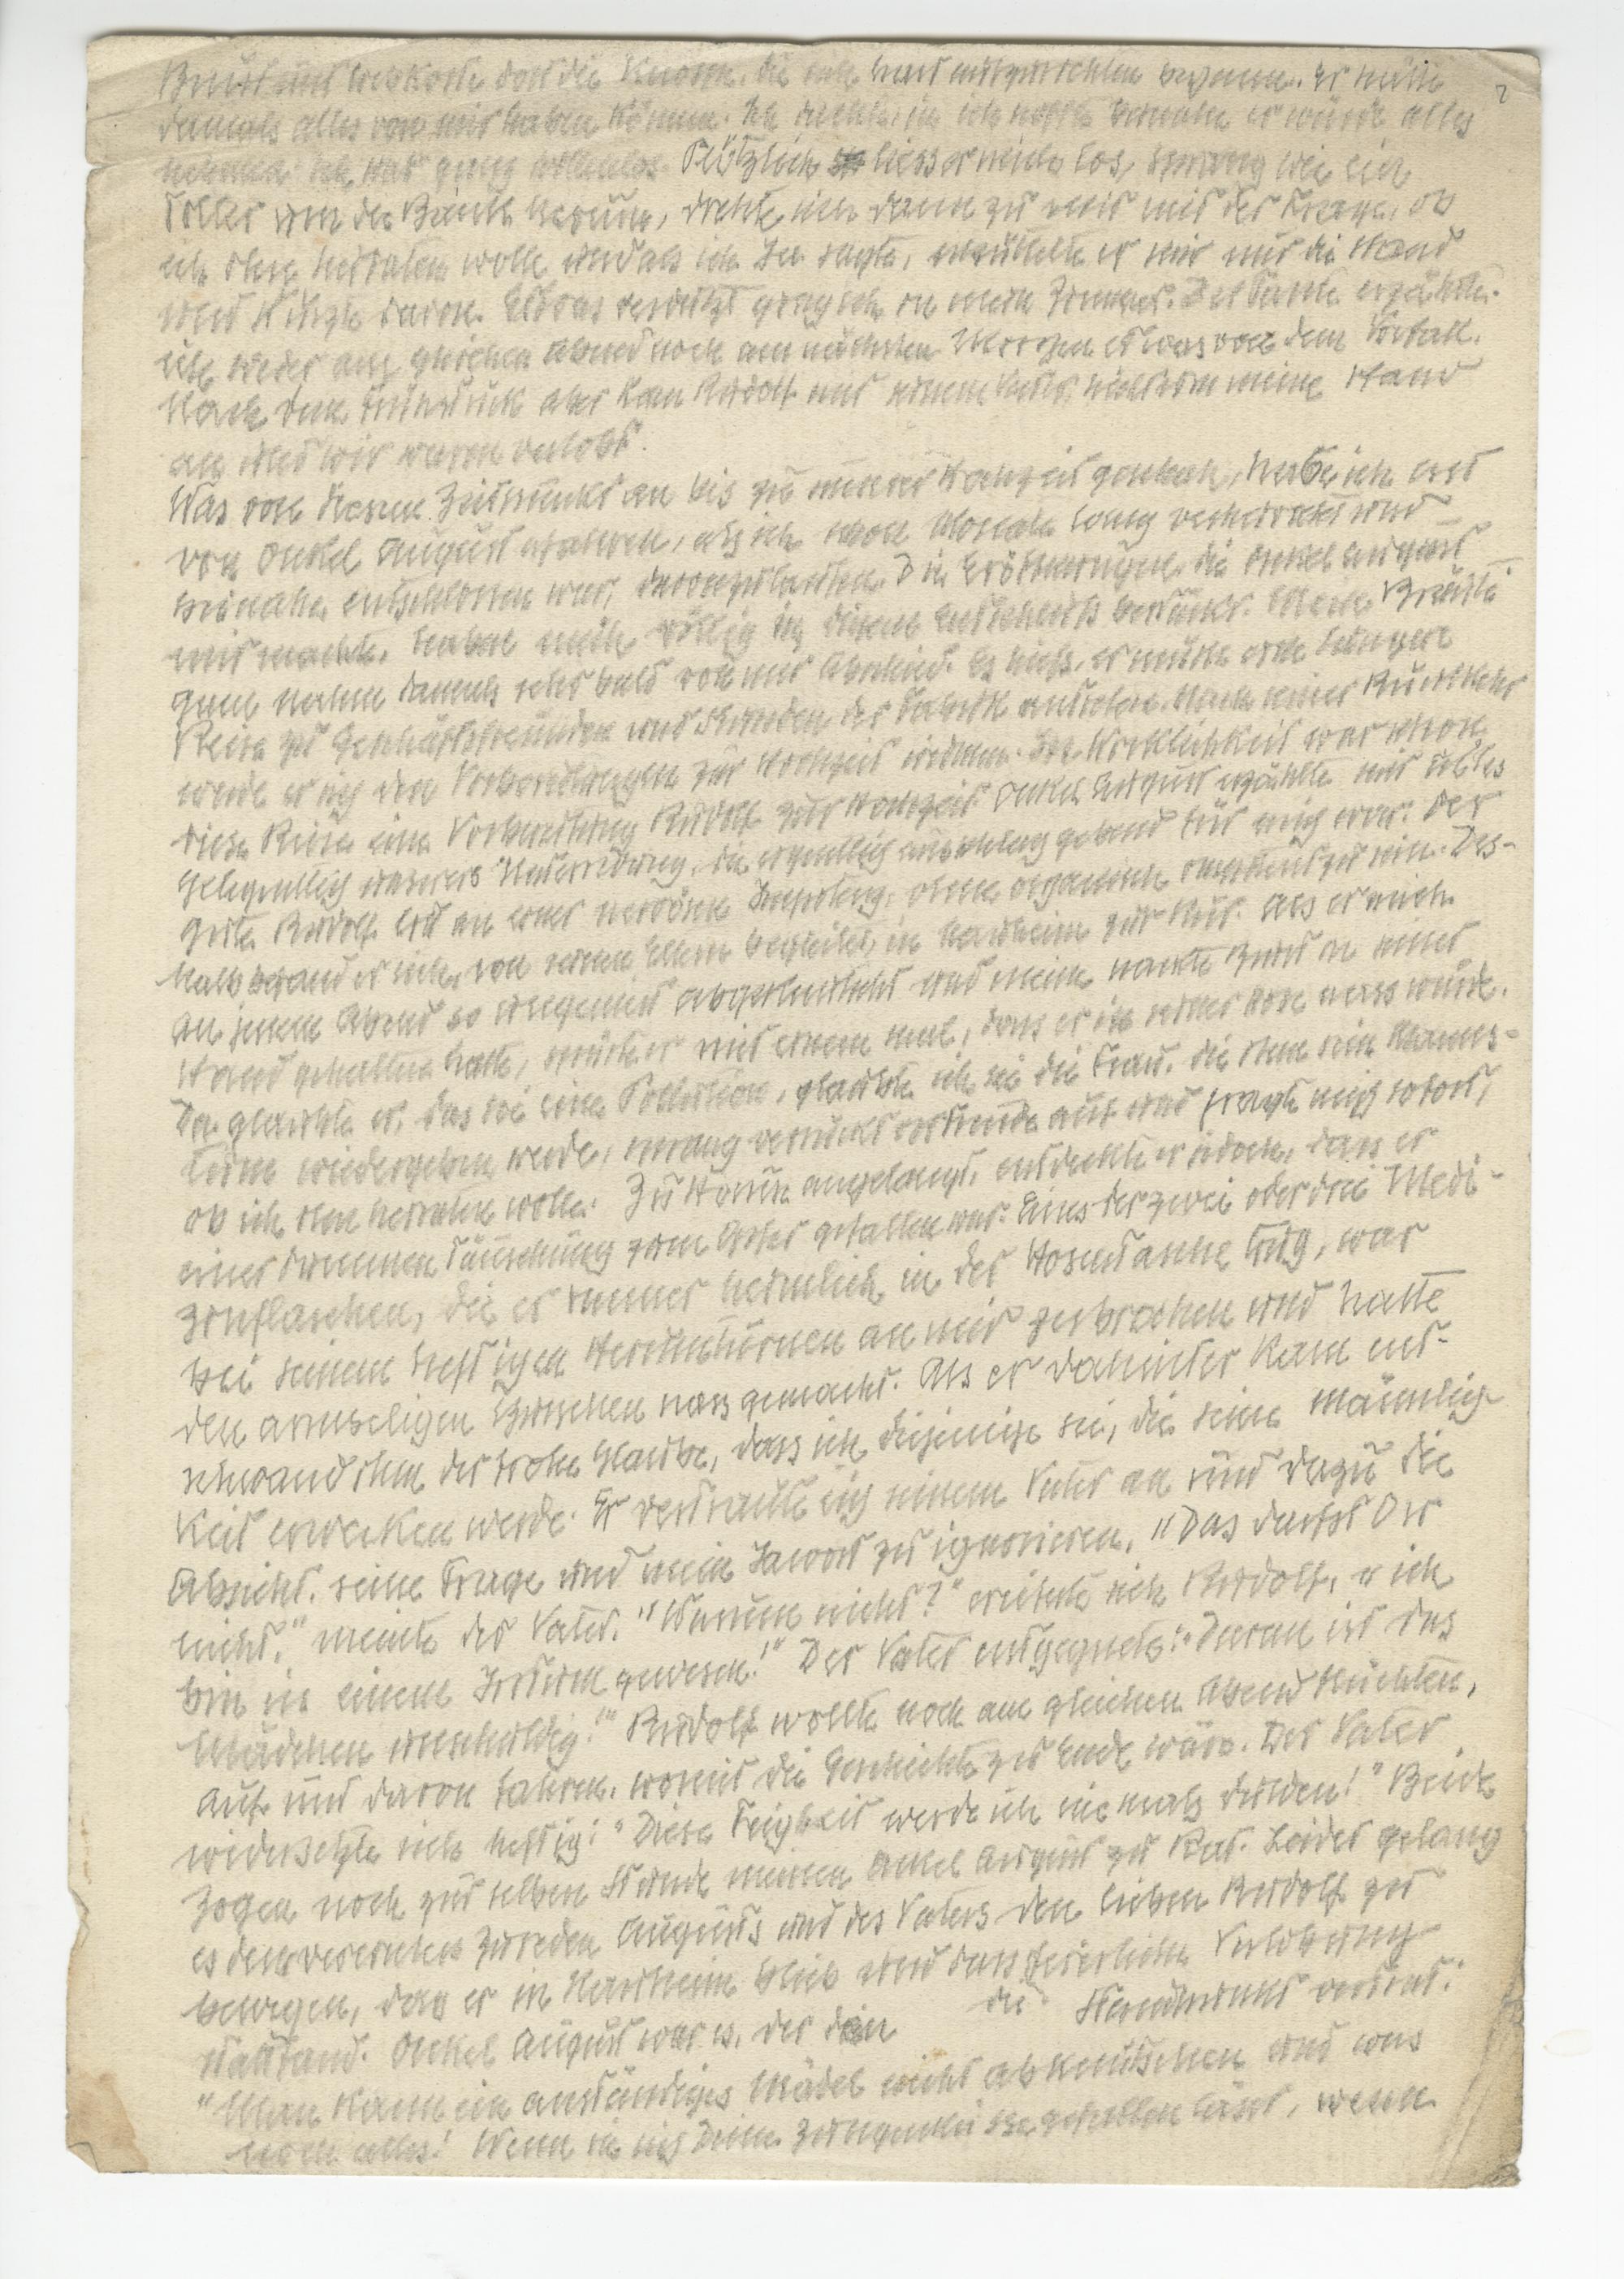 Brust und liebkoste dort die Knospe, die sich hart aufzurichten begann. Er hätte 2
damals alles von mir haben können. Ich dachte, ja ich hoffte beinahe er würde alles
nehmen. Ich war ganz willenlos. Plötzlich liess er mich los, sprang wie ein
Toller um die Bank herum, drehte sich dann zu mir mit der Frage, ob
ich ihn heiraten wolle und als ich Ja sagte, schüttelte er mir nur die Hand
und stürzte davon. Etwas verdutzt ging ich in mein Zimmer. Der Tante erzählte
ich weder am gleichen Abend noch am nächsten Morgen etwas von dem Vorfall.
Nach dem Frühstück aber kam Rudolf mit seinem Vater, hielt um meine Hand
an und wir waren verlobt.
Was von diesem Zeitpunkt an bis zu unserer Hochzeit geschah, habe ich erst
von Onkel August erfahren, als ich schon Monate lang verheiratet und
beinahe entschlossen war, davonzulaufen. Die Eröffnungen, die Onkel August
mir machte, haben mich völlig in diesem Entschluss bestärkt. Mein Bräuti-
gam nahm damals sehr bald von mir Abschied. Es hiess, er müsse eine längere
Reise zu Geschäftsfreunden und Kunden der Fabrik antreten. Nach seiner Rückkehr
werde er sich den Vorbereitungen zur Hochzeit widmen. In Wirklichkeit war schon
diese Reise eine Vorbereitung Rudolfs zur Hochzeit. Onkel August erzählte mir alles
gelegentlich unserer Unterredung, die eigentlich ausschlaggebend für mich war: Der
gute Rudolf litt an einer nervösen Impotenz, ohne organisch impotent zu sein. Des-
halb befand er sich, von seinen Eltern begleitet, in Nauheim zur Kur. Als er mich
an jenem Abend so ungeniert abgeknutscht und meine nackte Brust in seiner
Hand gehalten hatte, spürte er mit einem mal, dass er in seiner Hose nass wurde.
Da glaubte er, das sei eine Pollution, glaubte ich sei die Frau, die ihm sein Mannes-
tum wiedergeben werde, sprang verrückt vor Freude auf und fragte mich sofort,
ob ich ihn heiraten wolle. Zu Hause angelangt, entdeckte er jedoch, dass er
einer dummen Täuschung zum Opfer gefallen war. Eines der zwei oder drei Medi-
zinflaschen, die er immer heimlich in der Hosentasche trug, war
bei seinem heftigen Herumturnen an mir zerbrochen und hatte
den armseligen Burschen nass gemacht. Als er dahinter kam ent-
schwand ihm der frohe Glaube, dass ich diejenige sei, die seine Männlich-
keit erwecken werde. Er vertraute sich seinem Vater an und dazu die
Absicht, seine Frage und mein Jawort zu ignorieren. "Das darfst Du
nicht," meinte der Vater. "Warum nicht?" ereiferte sich Rudolf, "ich
bin in einem Irrtum gewesen!" Der Vater entgegnete: "Daran ist das
Mädchen unschuldig!" Rudolf wollte noch am gleichen Abend flüchten,
auf und davon fahren, womit die Geschichte zu Ende wäre. Der Vater
widersetzte sich heftig: "Diese Feigheit werde ich niemals dulden!" Beide
zogen noch zur selben Stunde meinen Onkel August zu Rat. Leider gelang
es dem vereinten Zureden Augusts und des Vaters den lieben Rudolf zu
bewegen, dass er in Nauheim blieb und dass feierliche Verlobung
stattfand. Onkel August war es, der den die Standpunkt vertrat:
"Man kann ein anständiges Mädel nicht abknutschen und was
noch alles! Wenn sie sich Deine Zungenküsse gefallen lässt, wenn